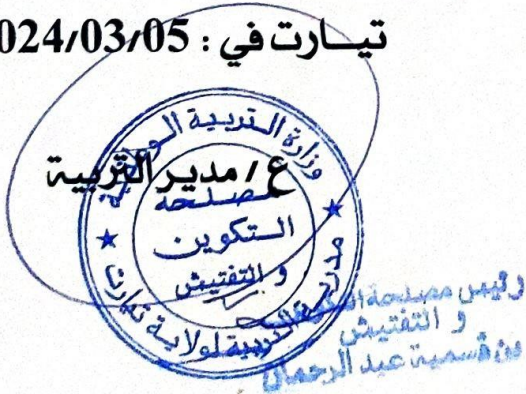 تيــارت في : 024/03/05
ع / مدير التربية
وزارة التربية الوطنية
مصلحة
التكوين
و التفتيش
مديرية التربية لولاية تيارت
رئيس مصلحة التكوين
و التفتيش
بن قسمية عبد الرحمان